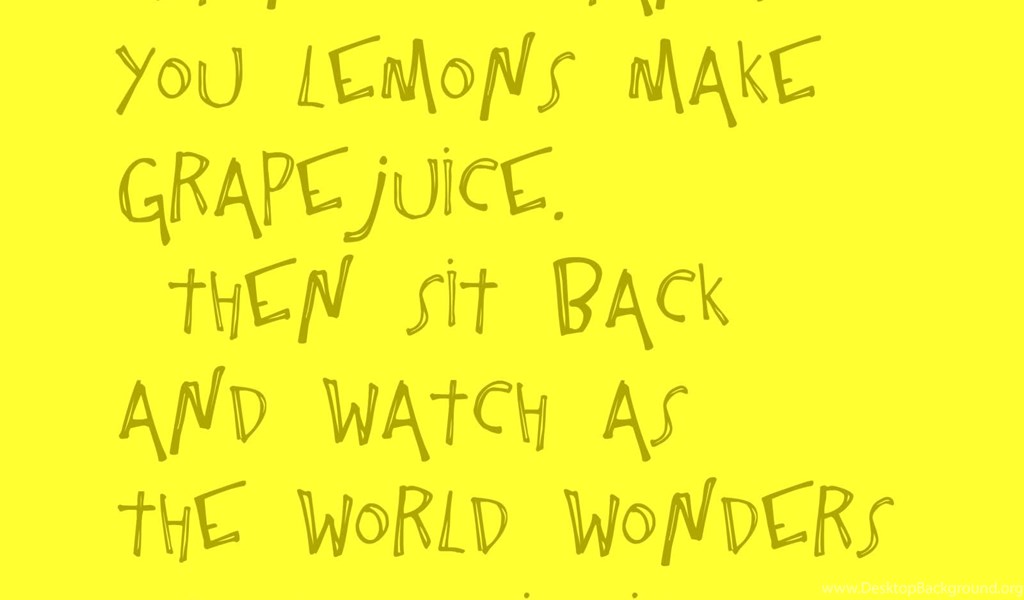 YOU LEMONS MAKE
GRAPEJUICE.
THEN SIT BACK
AND WATCH AS
THE WORLD WONDERS
www.DesktopBackground.org